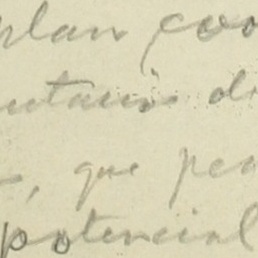 plan coo
utario de
, que pea
potencial